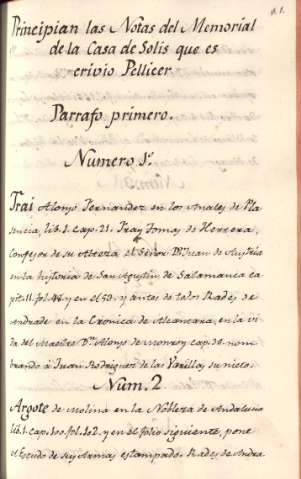 Principian las Notas del Memorial
de la Casa de Solis que es
crivio Pellicer.
Parrafo primero.
Numero 1º.
Frai Alonso Fernandez en los Anales de Pla
sencia, lib. 1. cap. 21. Fray Tomas de Herrera,
Confesor de su Alteza el Señor Dn. Juan de Austria
en la historia de San Agustin de Salamanca ca
pit. 11. fol. 44. y en el 53. y antes de todos Rades de
Andrade en la Cronica de Alcantara, en la vi
da del Maestro Dn. Alonso de Monroy cap. 38. nom
brando à Juan Rodriguez de las Varillas, su nieto.
Num. 2
Argote de Molina en la Nobleza de Andalucia
lib. 1. cap. 100. fol. 102. y en el folio siguiente, pone
el Escudo de sus Armas estampado. Rades de Andra